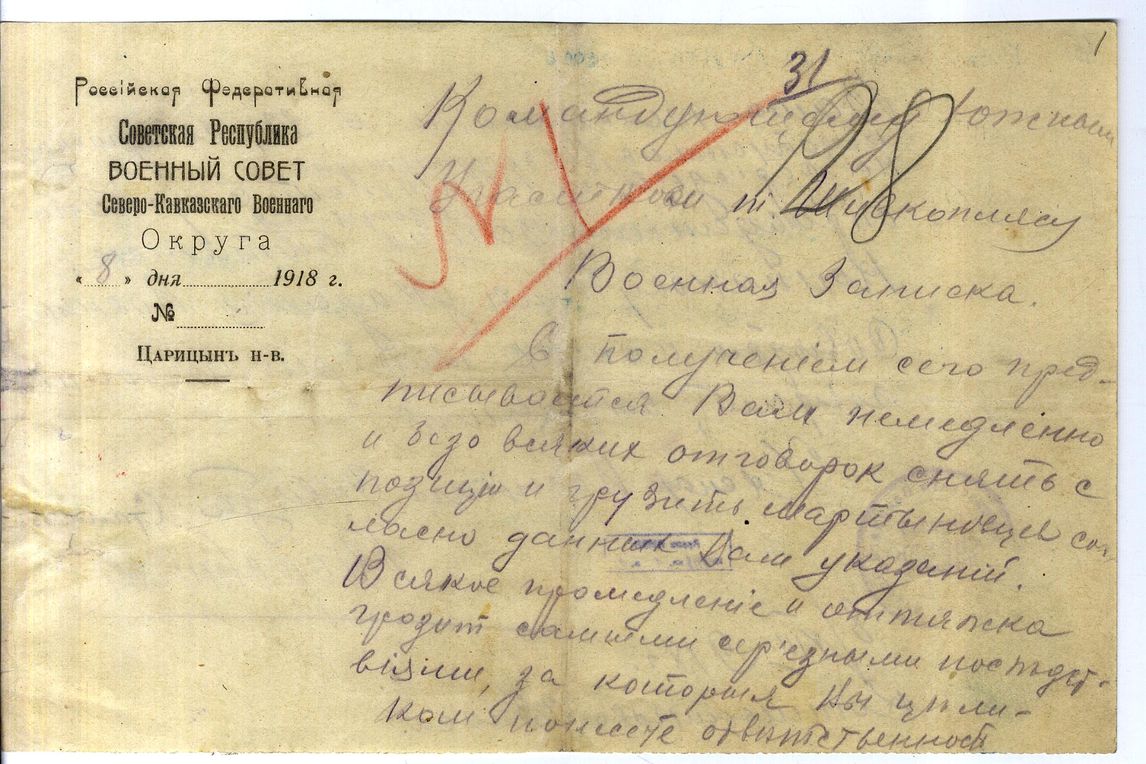 1
31
Россійская Федеративная
Советская Республика
ВОЕННЫЙ СОВЕТ
Северо-Кавказскаго Военнаго
Округа
« 8 » дня 1918 г.
№
Царицынъ н-в.
Командующему Южным
Участком т Шевкоплясу
Военная Записка.
С получением сего пред-
писывается Вам немедленно
и безо всяких отговорок снять с
позиціи и грузить мартыновцев сог-
ласно данных Вам указаній.
Всякое промедленіе и оттяжка
грозит самыми сер'езными последст-
віями, за которыя Вы цели-
ком понесете ответственность